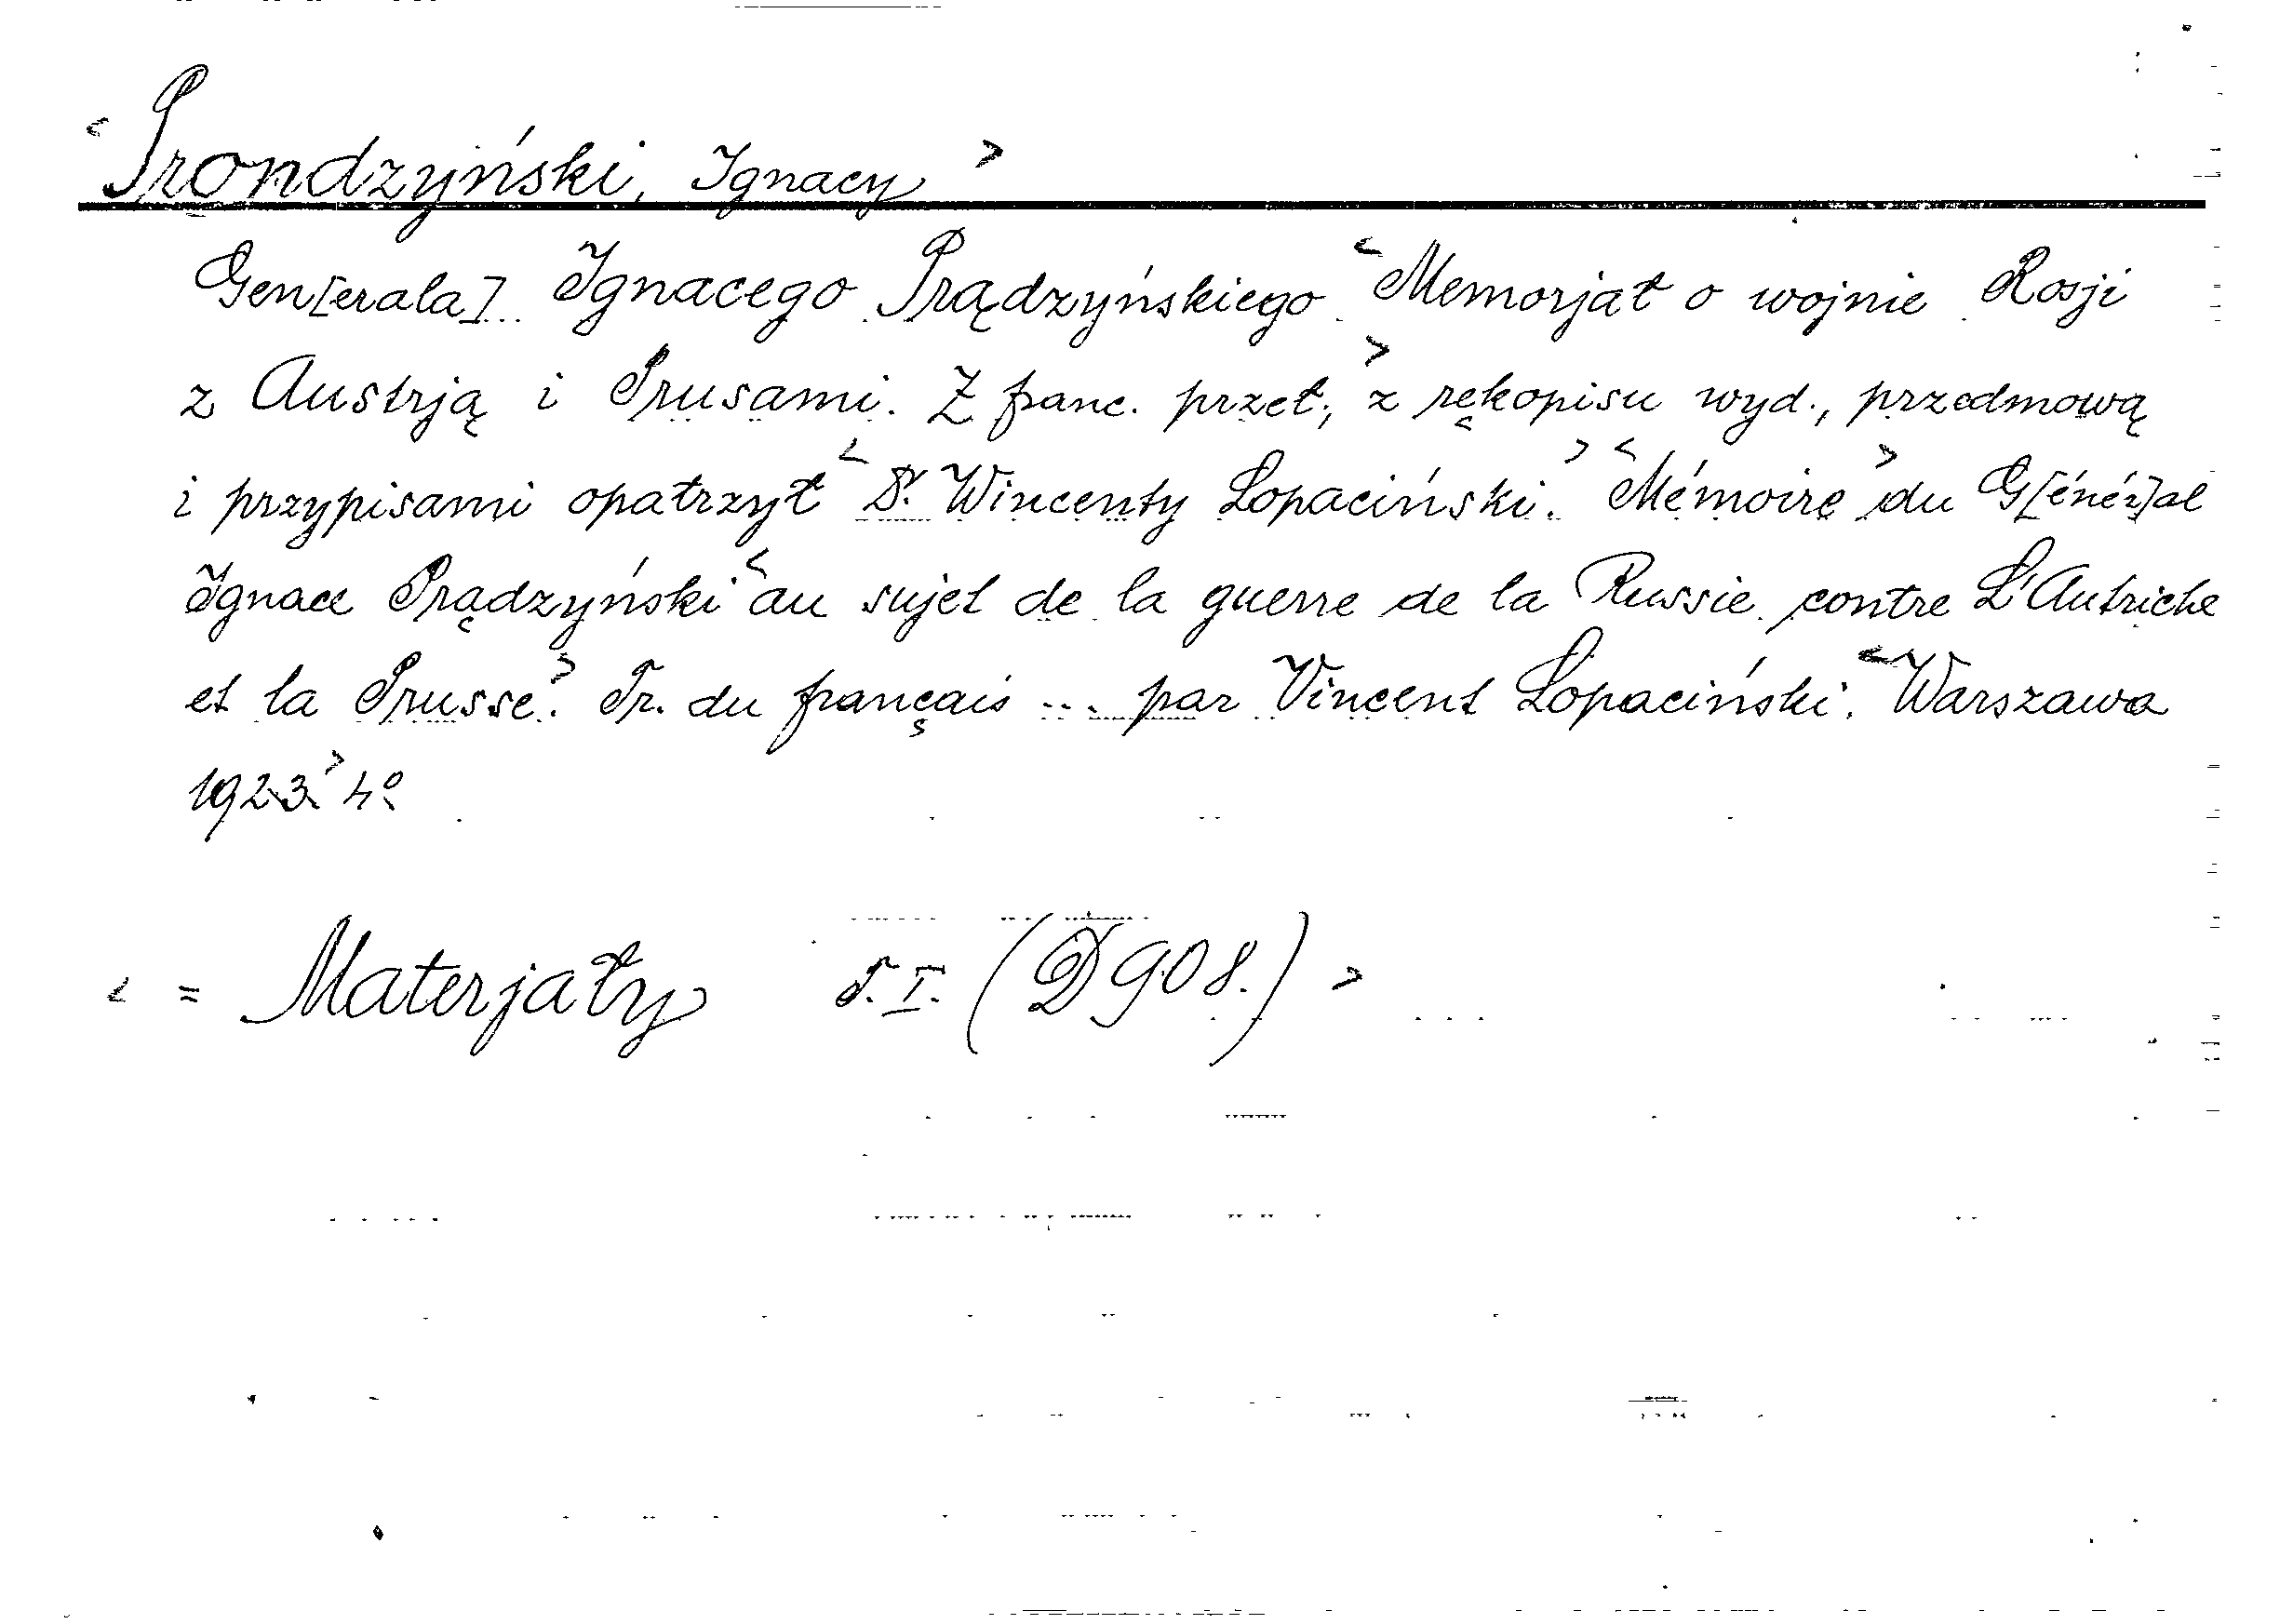 < Prondzyński, Ignacy >
Gen[erala] Ignacego Prądzyńskiego < Memorjał o wojnie Rosji
z Austrją i Prusami. > Z franc. przeł., z rękopisu wyd., przedmową
i przypisami opatrzył < Dr. Wincenty Łopaciński. > < Mémoire > du G[énér]al
Ignace Prądzyński < au sujet de la guerre de la Russie contre L'Autriche
et la Prusse. > Tr. du français ... par Vincent Łopaciński. < Warszawa
1923. > 4°
< = Materjały T. I. (D 908.) >